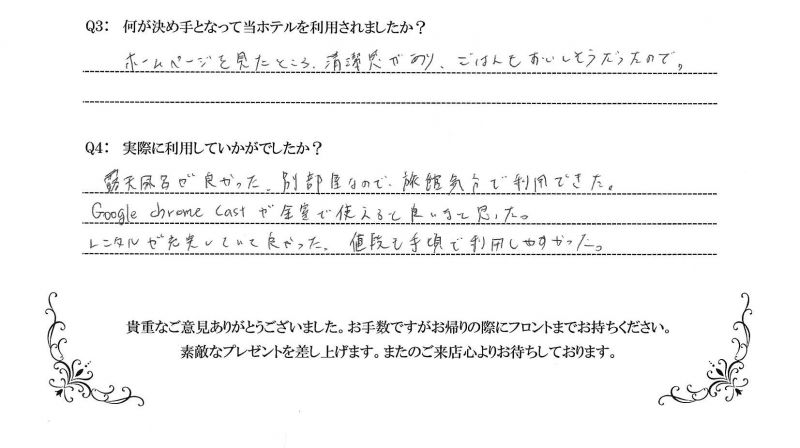 Q3： 何が決め手となって当ホテルを利用されましたか？
ホームページを見たところ、清潔感があり、ごはんもおいしそうだったので。
Q4： 実際に利用していかがでしたか？
露天風呂が良かった。別部屋なので、旅館気分で利用できた。
Google chrome castが全室で使えると良いなと思った。
レンタルが充実していて良かった。値段も手頃で利用しやすかった。
貴重なご意見ありがとうございました。お手数ですがお帰りの際にフロントまでお持ちください。
素敵なプレゼントを差し上げます。またのご来店心よりお待ちしております。